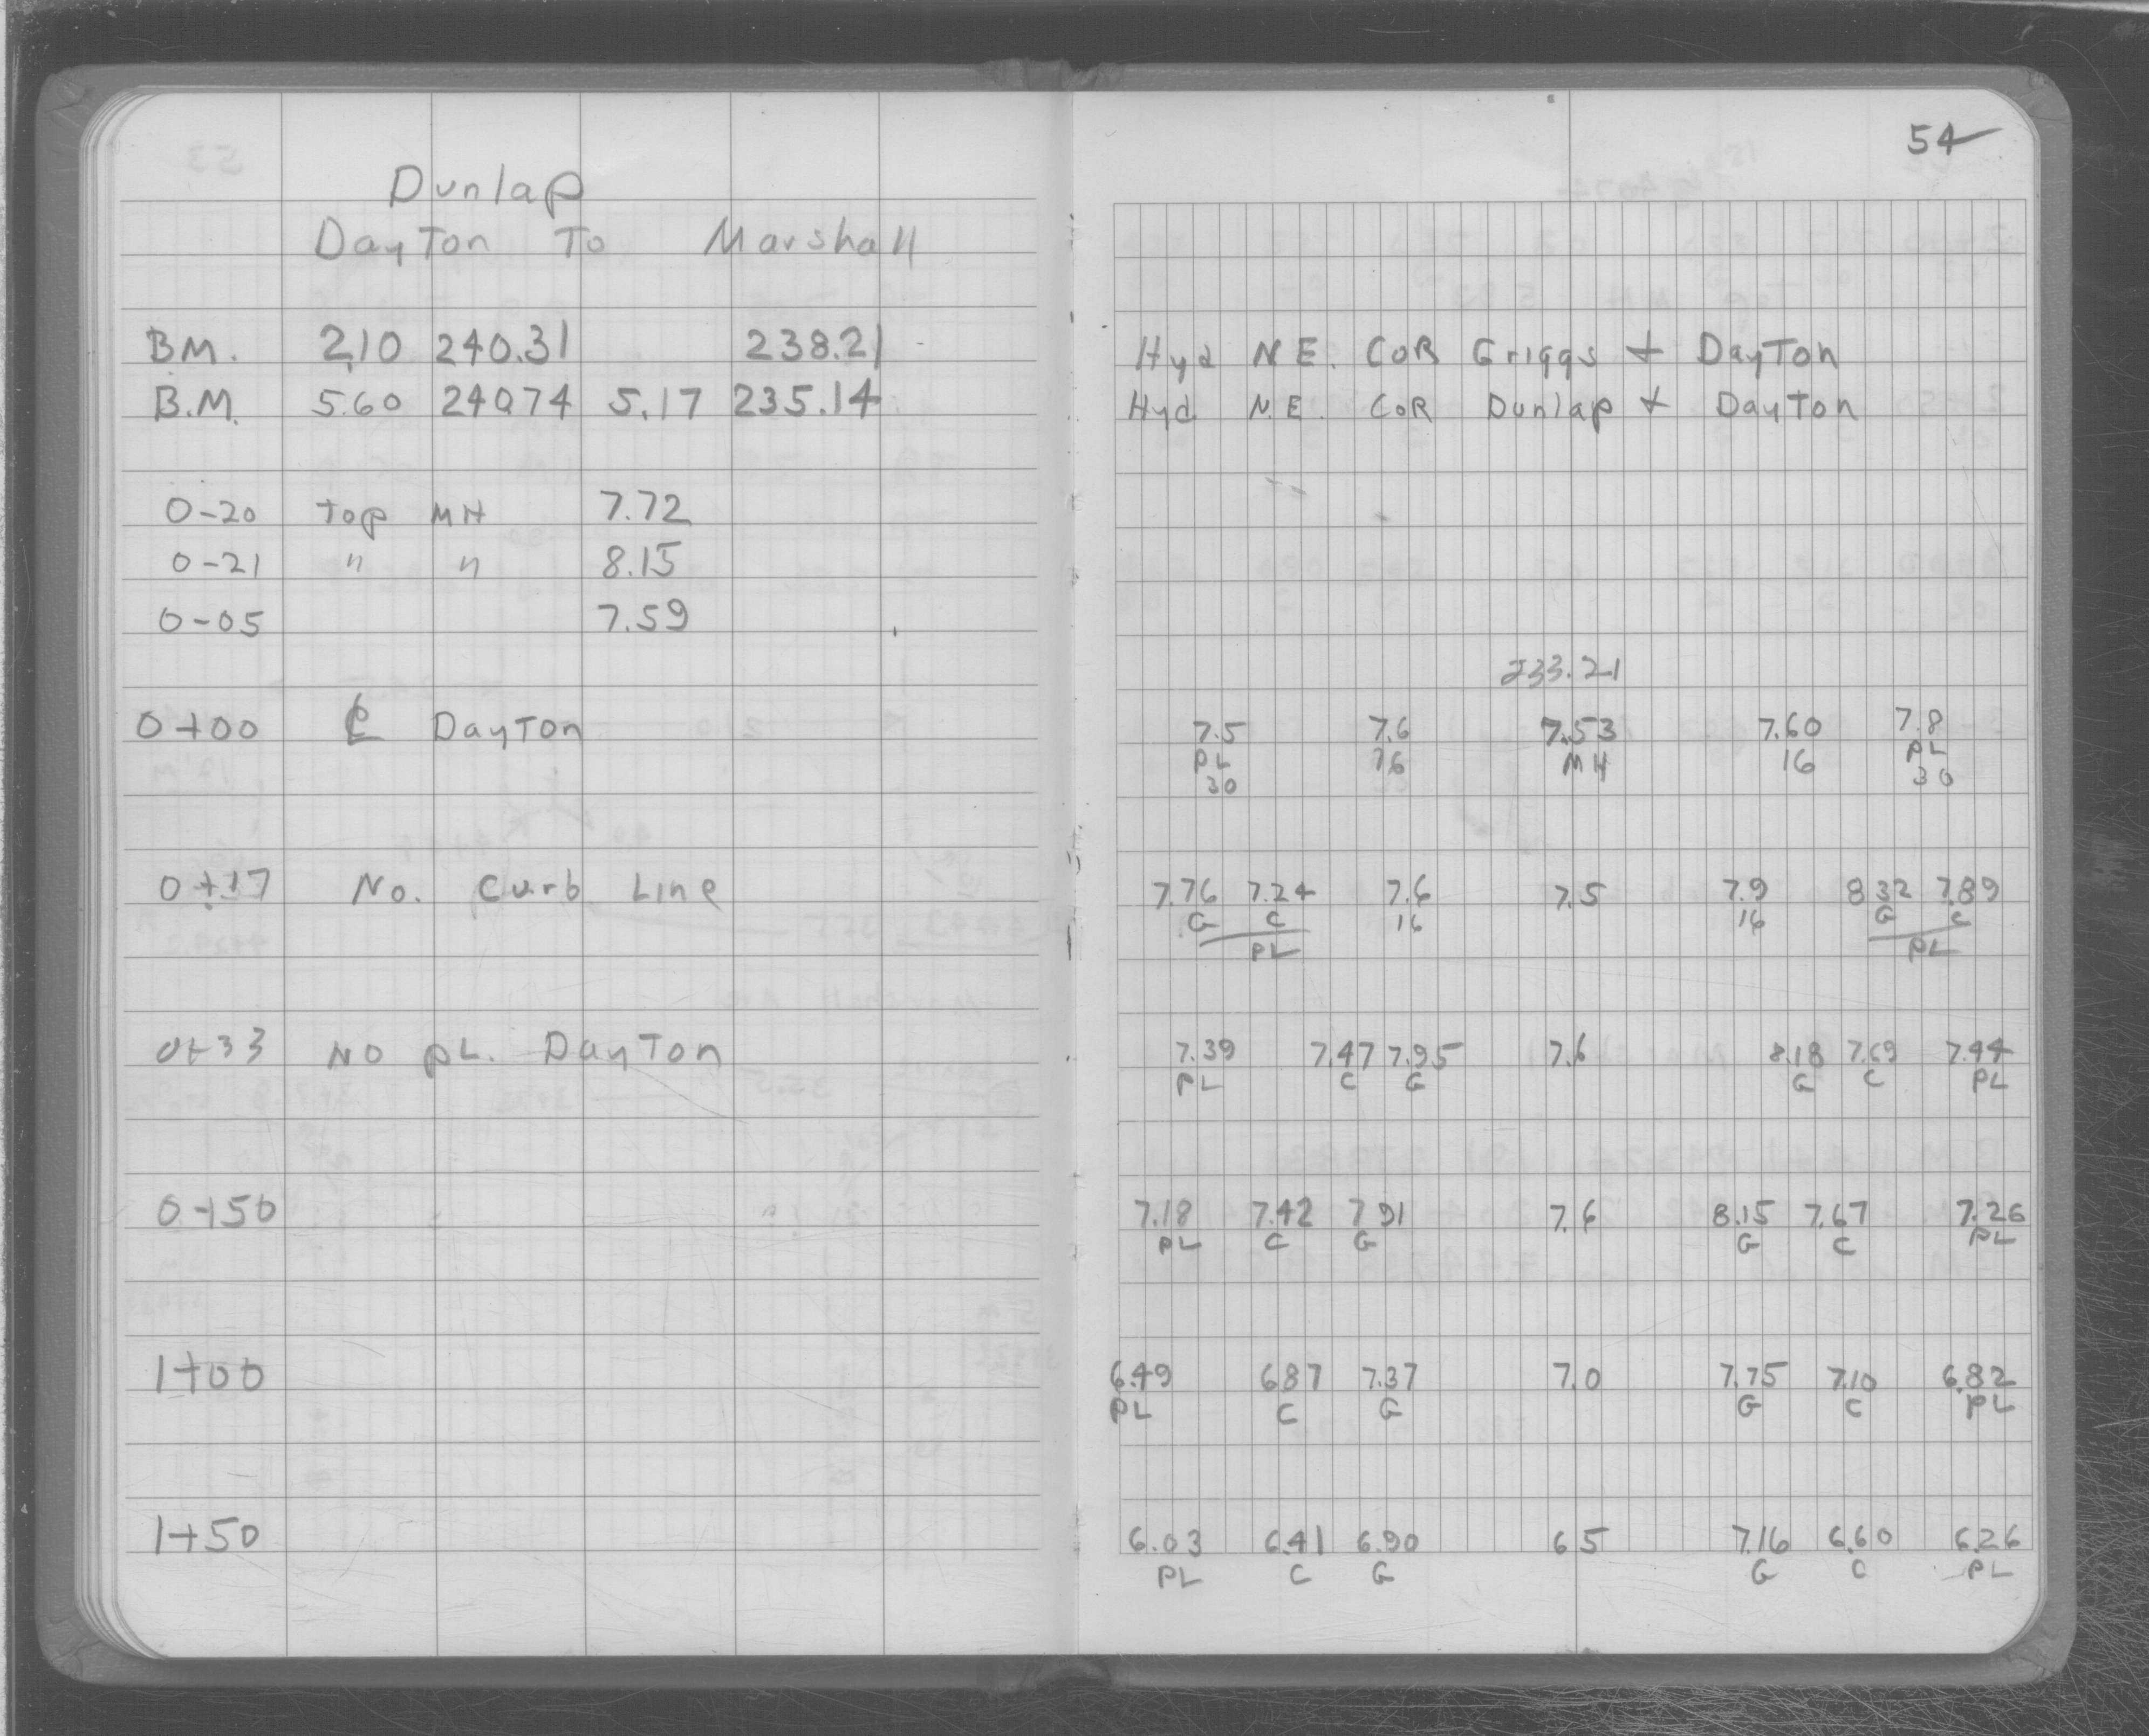 54
Dunlap
Dayton To Marshall
BM. 2.10 240.31 238.21 Hyd N.E. CoR Griggs + Dayton
B.M. 5.60 240.74 5.17 235.14 Hyd. N.E. CoR Dunlap + Dayton
0-20 top MH 7.72
0-21 " " 8.15
0-05 7.59
233.21
0+00 ℄ Dayton 7.5 7.6 7.53 7.60 7.8
PL 16 MH 16 PL
30 30
0+17 No. Curb Line 7.76 7.24 7.6 7.5 7.9 8.32 7.89
G C 16 16 G C
PL PL
0+33 No PL. Dayton 7.39 7.47 7.95 7.6 8.18 7.69 7.44
PL C G G C PL
0+50 7.18 7.42 7.91 7.6 8.15 7.67 7.26
PL C G G C PL
1+00 6.49 6.87 7.37 7.0 7.75 7.10 6.82
PL C G G C PL
1+50 6.03 6.41 6.90 6.5 7.16 6.60 6.26
PL C G G C PL